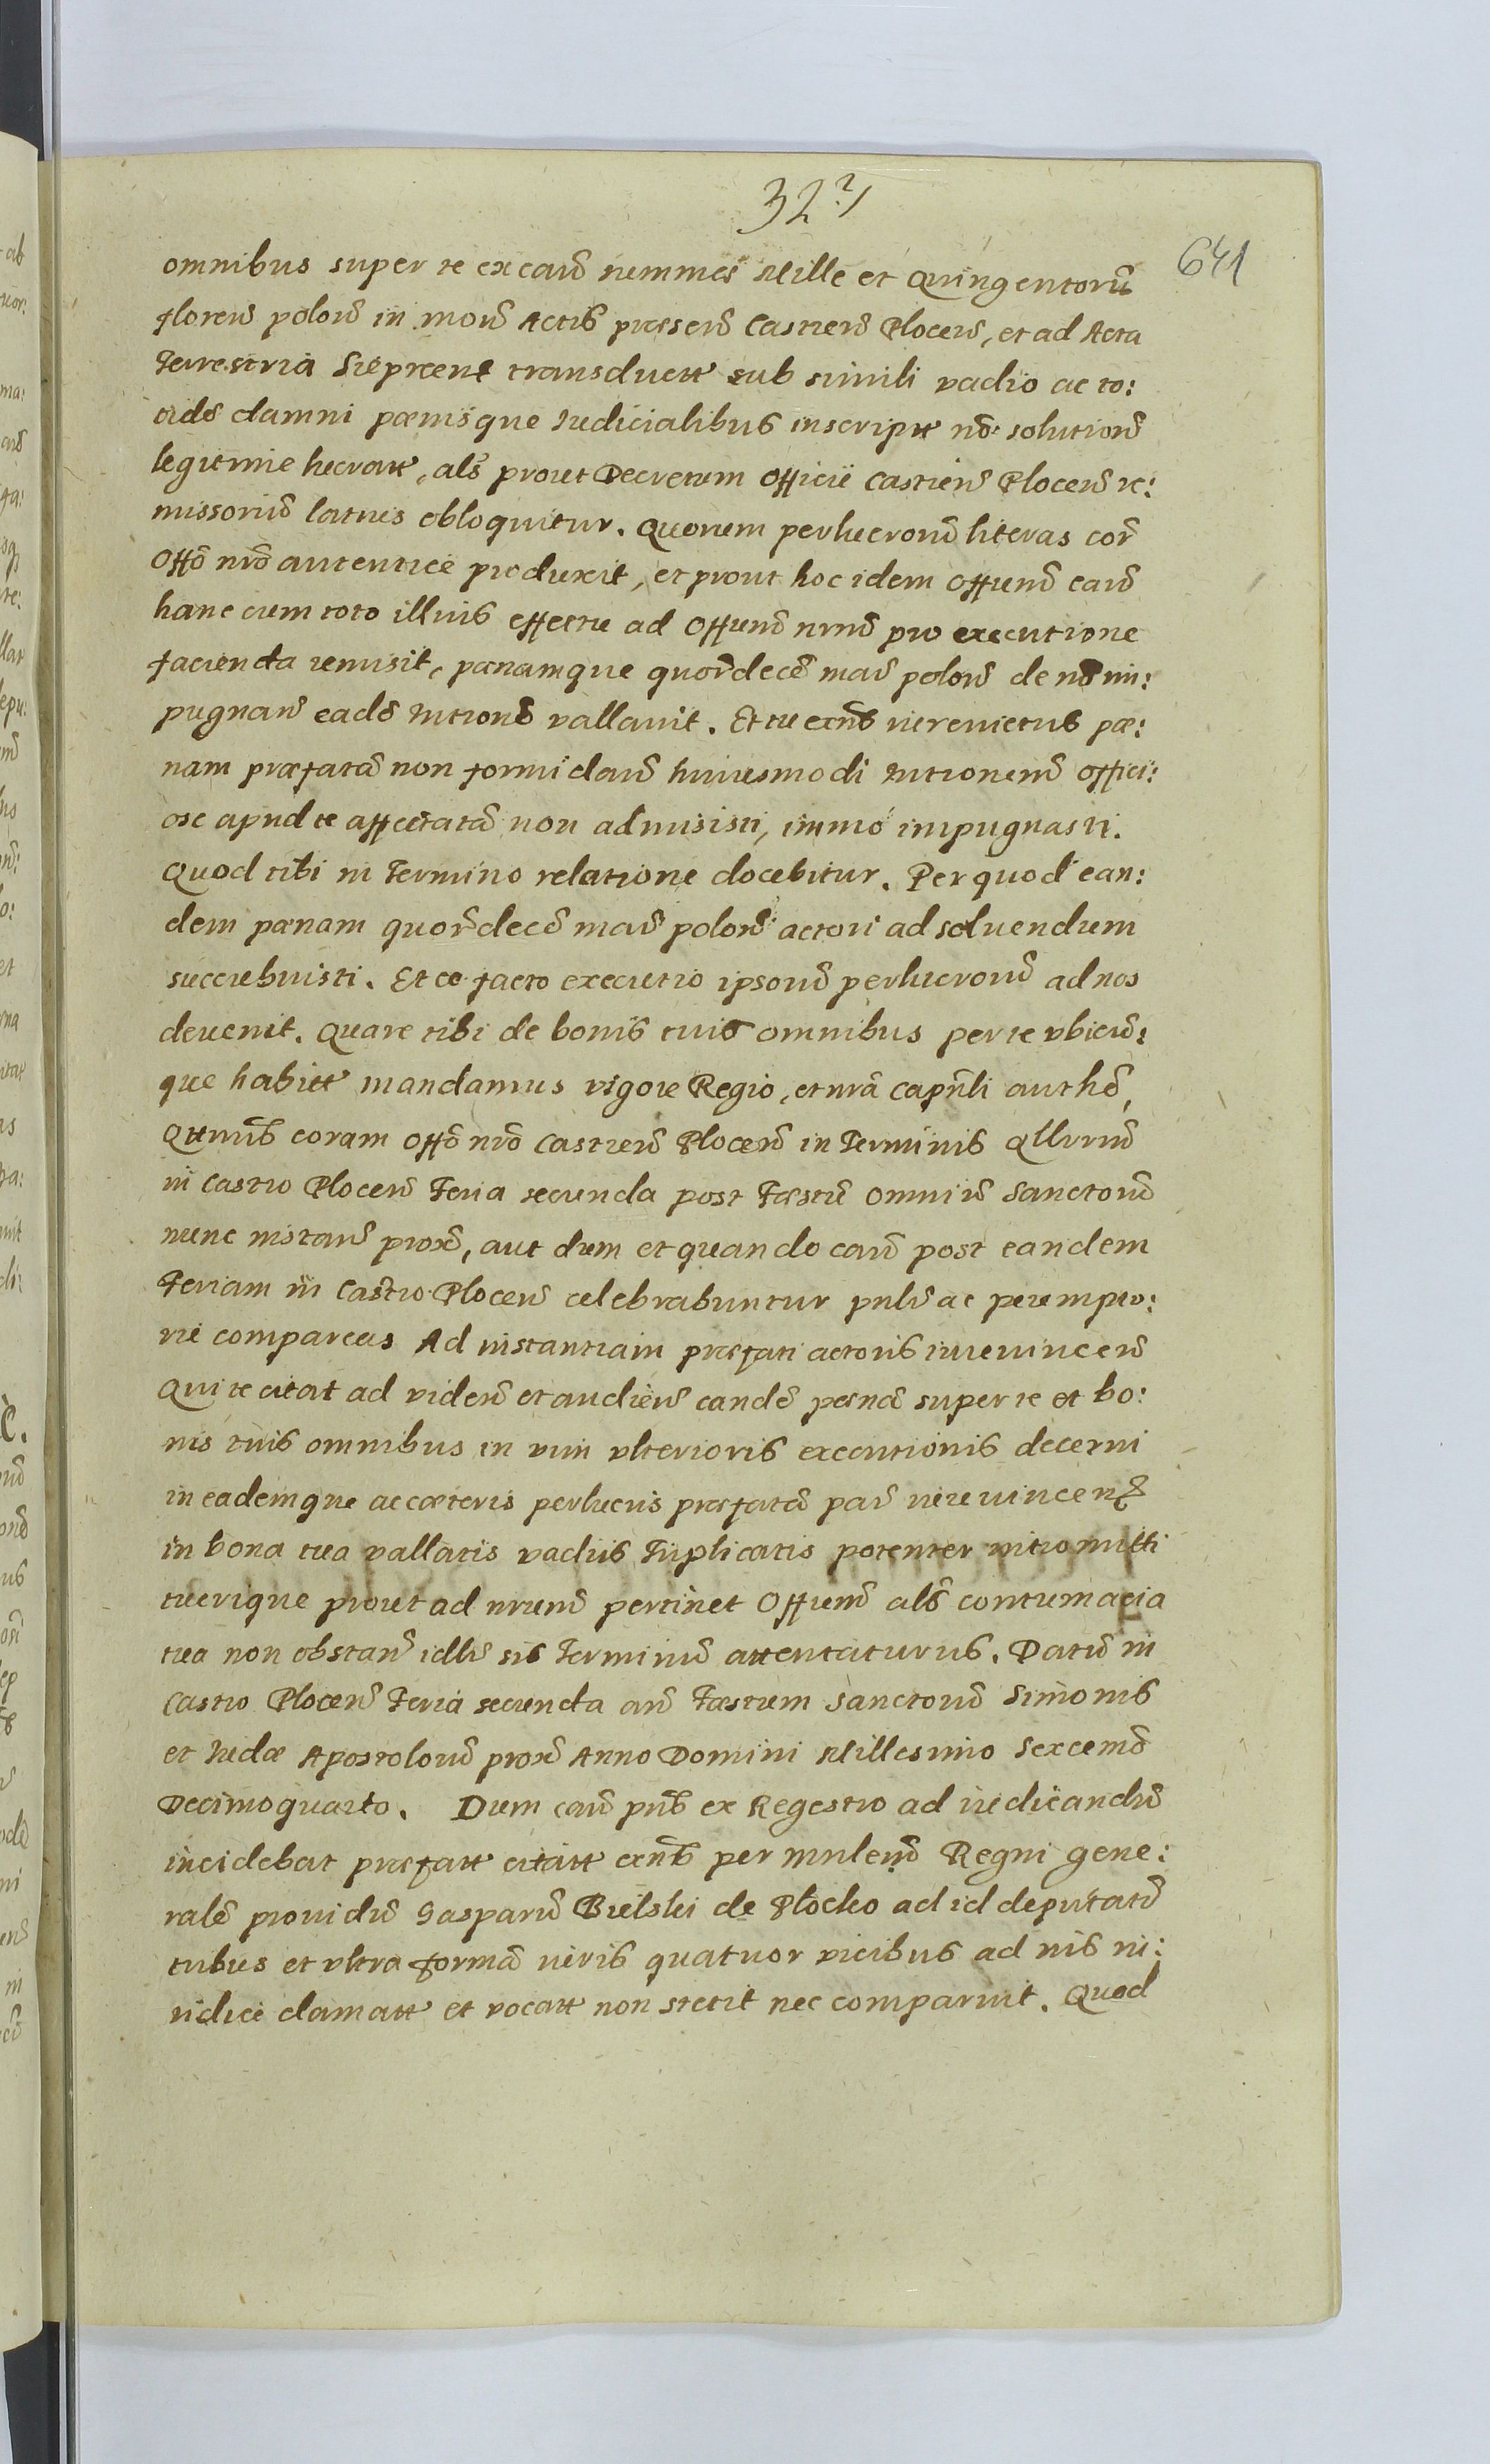 327
641
omnibus super te ex caũ summes Mille et Quingentorũ
florenũ polorũ in morũ Actis præsenũ Castrenũ Plocenũ, et ad Acta
Terrestria Sieprcens transductt sub simili vadio ac to:
tidẽ damni pænisque Iudicialibus inscriptt nõ solutionẽ
legitime lucratt, als prout Decretum Officii Castrenũ Plocenũ re:
missoriũ latius obloquitur. Quorum perlucrorũ literas corã
Offõ nrõ autentice produxit, et prout hoc idem Offiunũ caũ
hanc cum toto illius effectu ad Offiunũ nrũm pro executione
facienda remisit, pænamque quordecẽ marũ polorũ de nõ im:
pugnanũ eadẽ Intronẽ vallavit. Et tu exñs iurevictus pæ:
nam præfatã non formidanũ huiusmodi Intronemũ offici:
ose apud te affectatã non admisisti, immó impugnasti.
Quod tibi in Termino relatione docebitur. Per quod ean:
dem pænam quordecẽ marũ polorũ actori ad soluendum
succubuisti. Et eo facto executio ipsorũ perlucrorũ ad nos
deuenit. Quare tibi de bonis tuis omnibus per te vbicũ:
que habitt mandamus vigore Regio, et nrã Capñli authẽ,
Qtenũs coram offõ nrõ Castrenũ Plocenũ in Terminis Qllrum̃
in Castro Plocenũ Feria secunda post Fæstũ Omniũ Sanctorũ
nunc instanũ proxẽ, aut dum et quando caũ post eandem
Feriam in Castro Plocenũ celebrabuntur pñlr ac perempto:
rie compareas Ad instantiam præfati actoris iurevincenũ
Qui te citat ad videnũ et audienũ eandẽ pænã super te et bo:
nis tuis omnibus in vim vlterioris executionis decerni
in eademque ac cæteris perlucris præfatã parũ iurevincenẽ
in bona tua vallatis vadiis Triplicatis potenter intromitti
tuerique prout ad nrum̃ pertinet Offium̃ als contumacia
tua non obstanũ idllr sis Terminũ attentaturus. Datũ in
Castro Plocenũ Feria secunda anũ Fæstum Sanctorũ Simonis
et Iudæ Apostolorũ proxẽ Anno Domini Millesimo Sexcemõ
Decimoquarto. Dum caũ pñs ex Regestro ad iudicandũ
incidebat præfatt citatt exñs per Mñlem̃ Regni gene:
ralẽ prouidũ Gasparũ Bielski de Plocko ad id deputatũ
tribus et vltra formã iuris quatuor vicibus ad nis iu:
ridice clamatt et vocatt non stetit nec comparuit. Quod